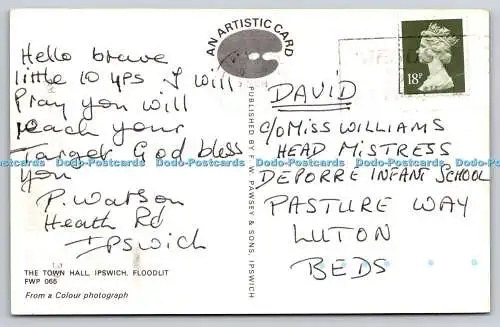 Hello brave
little 10 yrs I will
Pray you will
reach your
Target God bless
you
P. Watson
Heath Rd
Ipswich
THE TOWN HALL, IPSWICH, FLOODLIT
FWP 066
From a Colour photograph
AN ARTISTIC CARD
PUBLISHED BY F. W. PAWSEY & SONS, IPSWICH
18P
DAVID
c/o MISS WILLIAMS
HEAD MISTRESS
DEPORRE INFANT SCHOOL
PASTURE WAY
LUTON
BEDS
Dodo-Postcards Dodo-Postcards Dodo-Postcards Dodo-Postcards